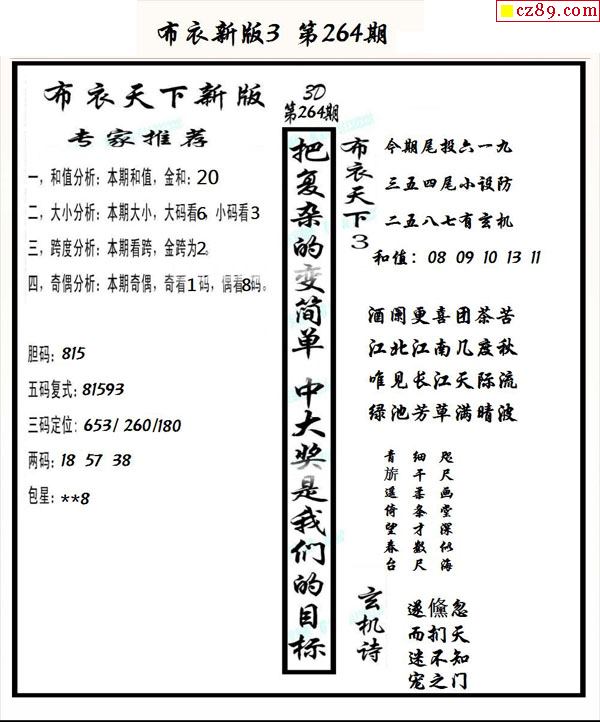 cz89.com
布衣新版3 第264期
布衣天下新版
专家推荐
一，和值分析：本期和值，金和：20
二，大小分析：本期大小，大码看6，小码看3
三，跨度分析：本期看跨，金跨为2。
四，奇偶分析：本期奇偶，奇看1码，偶看8码。
胆码：815
五码复式：81593
三码定位：653/ 260/180
两码：18 57 38
包星：**8
3D
第264期
把复杂的变简单 中大奖是我们的目标
布衣天下3
今期尾投六一九
三五四尾小设防
二五八七有玄机
和值：08 09 10 13 11
酒阑更喜团茶苦
江北江南几度秋
唯见长江天际流
绿池芳草满晴波
咫尺画堂深似海
细千柔条才数尺
青旂遥倚望春台
玄机诗
忽天知门
儵扪不之
遂而迷宠